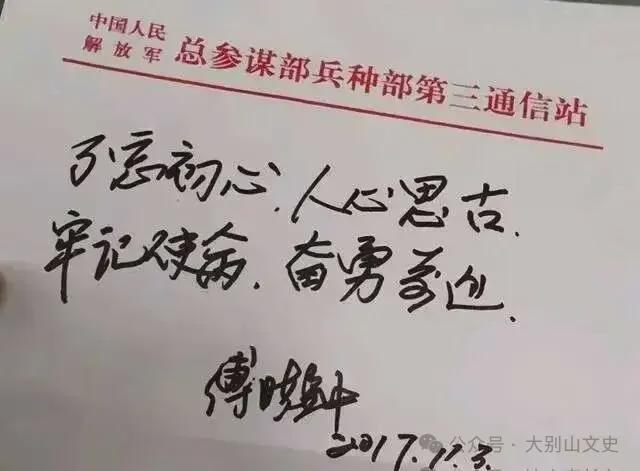 中国人民
解放军 总参谋部兵种部第三通信站
不忘初心.人心思古.
牢记使命.奋勇前进.
傅晓
2017.
公众号 · 大别山文史